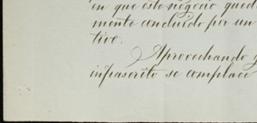 en que este negocio qued
mente concluido por un
tivo.
Aprovechando
infrascrito se complace